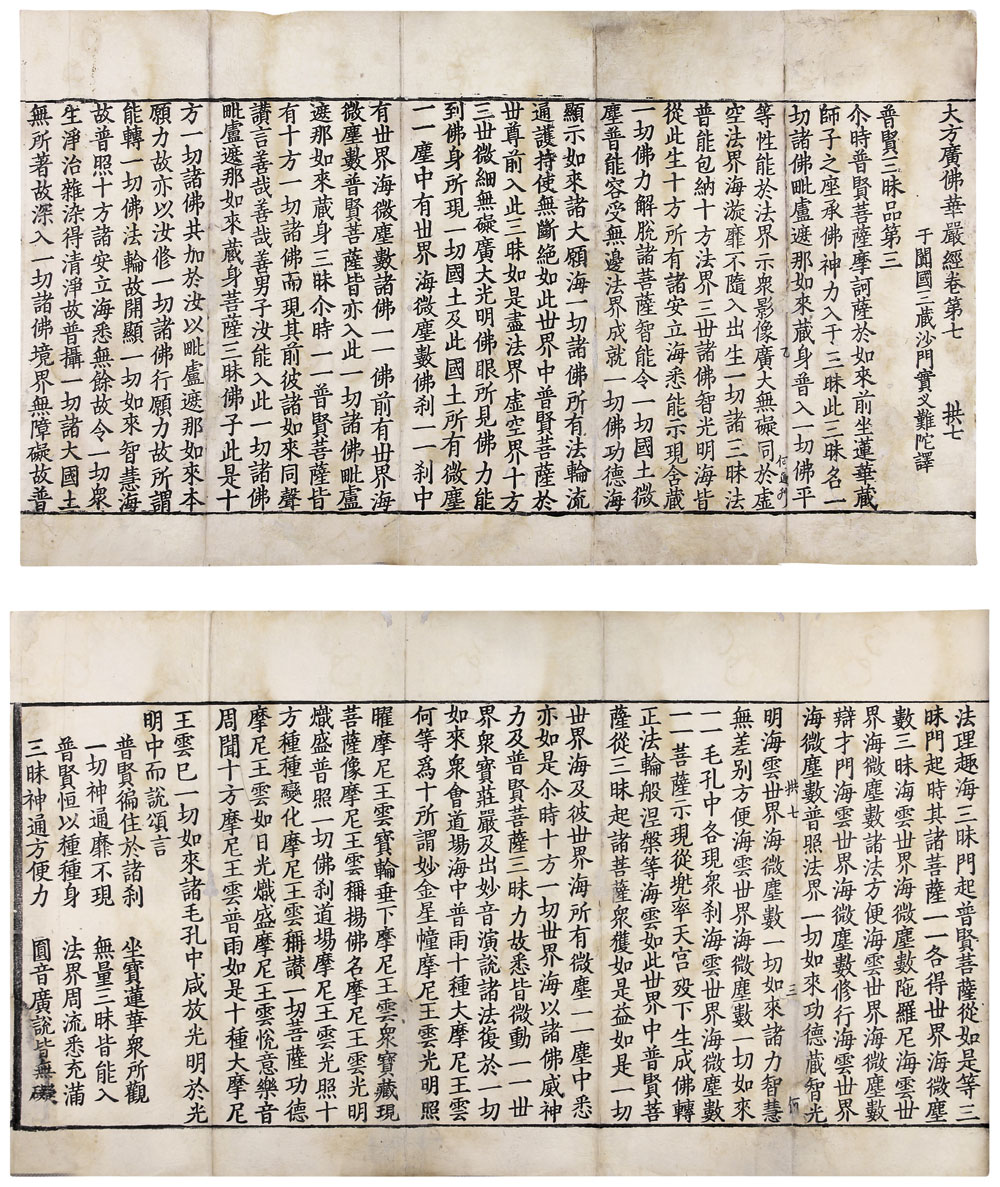 大方廣佛華嚴經卷第七 拱七
于闐國三藏沙門實叉難陀譯
普賢三昧品第三
尒時普賢菩薩摩訶薩於如來前坐蓮華藏
師子之座承佛神力入于三昧此三昧名一
切諸佛毗盧遮那如來藏身普入一切佛平
等性能於法界示衆影像廣大無礙同於虛
空法界海漩靡不隨入出生一切諸三昧法
普能包納十方法界三世諸佛智光明海皆
從此生十方所有諸安立海悉能示現含藏
一切佛力解脫諸菩薩智能令一切國土微
塵普能容受無邊法界成就一切佛功德海
顯示如來諸大願海一切諸佛所有法輪流
通護持使無斷絕如此世界中普賢菩薩於
世尊前入此三昧如是盡法界虛空界十方
三世微細無礙廣大光明佛眼所見佛力能
到佛身所現一切國土及此國土所有微塵
一一塵中有世界海微塵數佛刹一一刹中
有世界海微塵數諸佛一一佛前有世界海
微塵數普賢菩薩皆亦入此一切諸佛毗盧
遮那如來藏身三昧尒時一一普賢菩薩皆
有十方一切諸佛而現其前彼諸如來同聲
讚言善哉善哉善男子汝能入此一切諸佛
毗盧遮那如來藏身菩薩三昧佛子此是十
方一切諸佛共加於汝以毗盧遮那如來本
願力故亦以汝修一切諸佛行願力故所謂
能轉一切佛法輪故開顯一切如來智慧海
故普照十方諸安立海悉無餘故令一切衆
生淨治雜染得清淨故普攝一切諸大國土
無所著故深入一切諸佛境界無障礙故普
法理趣海三昧門起普賢菩薩從如是等三
昧門起時其諸菩薩一一各得世界海微塵
數三昧海雲世界海微塵數陁羅尼海雲世
界海微塵數諸法方便海雲世界海微塵數
辯才門海雲世界海微塵數修行海雲世界
海微塵數普照法界一切如來功德藏智光
拱七 三 何
明海雲世界海微塵數一切如來諸力智慧
無差别方便海雲世界海微塵數一切如來
一一毛孔中各現衆刹海雲世界海微塵數
一一菩薩示現從兜率天宮殁下生成佛轉
正法輪般涅槃等海雲如此世界中普賢菩
薩從三昧起諸菩薩衆獲如是益如是一切
世界海及彼世界海所有微塵一一塵中悉
亦如是尒時十方一切世界海以諸佛威神
力及普賢菩薩三昧力故悉皆微動一一世
界衆寶莊嚴及出妙音演說諸法復於一切
如來衆會道場海中普雨十種大摩尼王雲
何等爲十所謂妙金星幢摩尼王雲光明照
曜摩尼王雲寶輪垂下摩尼王雲衆寶藏現
菩薩像摩尼王雲稱揚佛名摩尼王雲光明
熾盛普照一切佛刹道場摩尼王雲光照十
方種種變化摩尼王雲稱讚一切菩薩功德
摩尼王雲如日光熾盛摩尼王雲悅意樂音
周聞十方摩尼王雲普雨如是十種大摩尼
王雲已一切如來諸毛孔中咸放光明於光
明中而說頌言
普賢徧住於諸刹 坐寶蓮華衆所觀
一切神通靡不現 無量三昧皆能入
普賢恒以種種身 法界周流悉充滿
三昧神通方便力 圓音廣說皆無礙